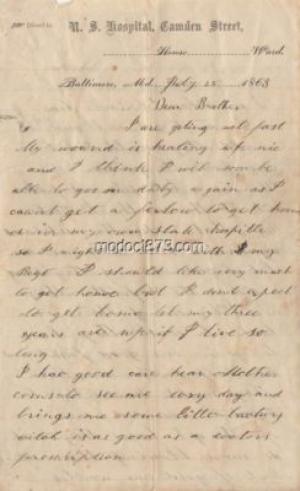 U. S. Hospital, Camden Street,
House Ward.
Baltimore, Md. July 25 1863
Dear Brother
I are geting well fast
My wound is healing up nic
and I think I will soon be
able to go on duty again as I
cannot get a furlow to get home
or in my own State hospittle
so I might
modoc1873.com
my
Regt I should like very much
to get home but I dont expect
to get home till my three
years are up if I live so
long
I has good care hear Mother
coms to see me evry day and
brings me some little
witch is as good as a doctors
prescription